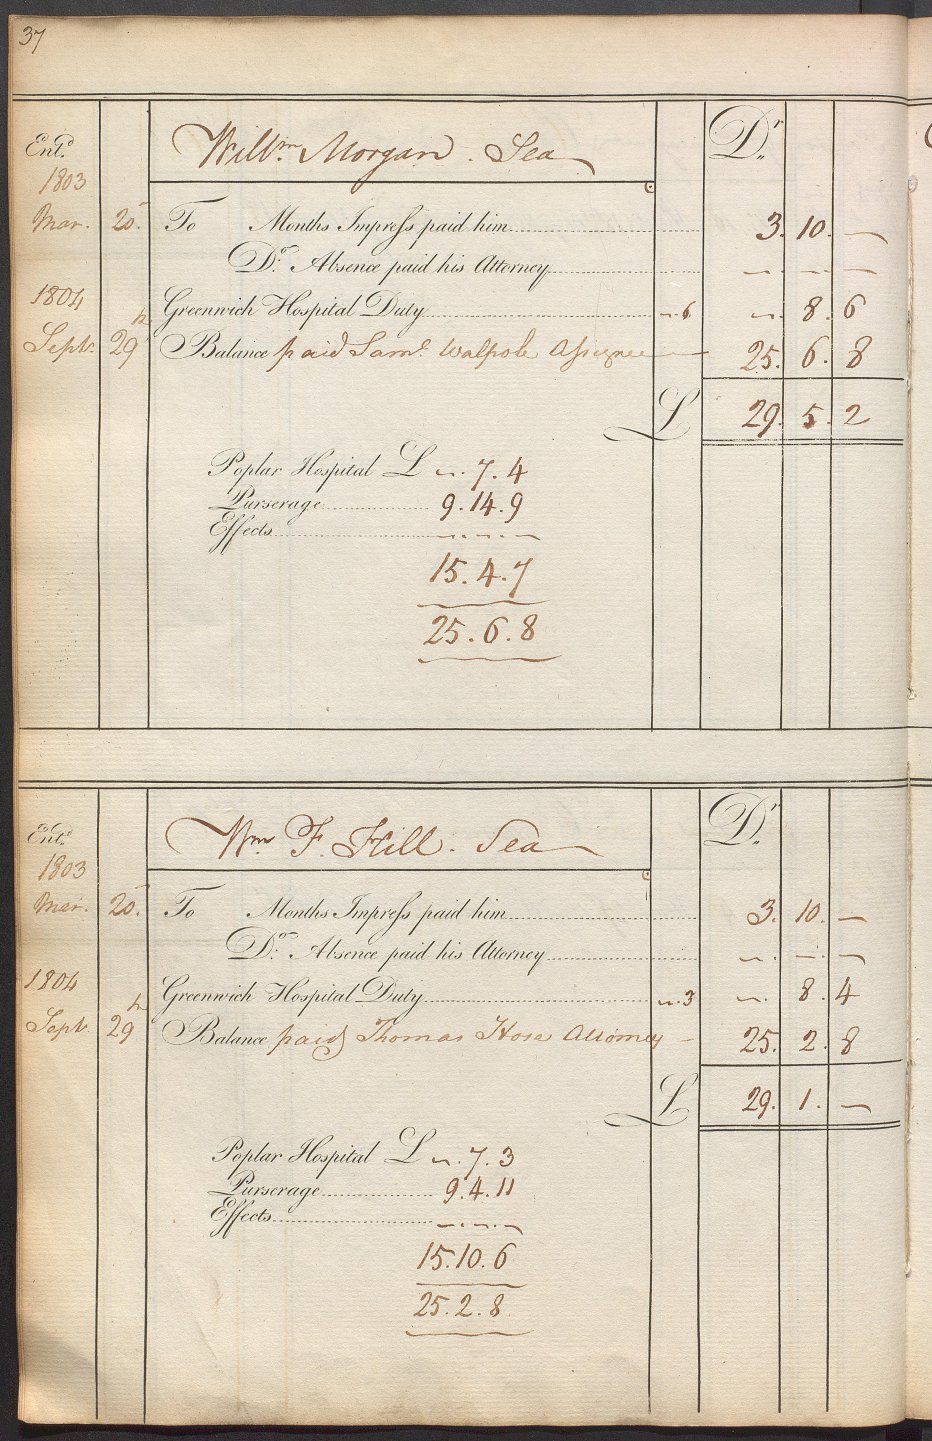 37
Ent.d Will.m Morgan. Sea D.r
1803
Mar. 25. To Months Impress paid him 3. 10. —
D.o Absence paid his Attorney —. —. —
1804 Greenwich Hospital Duty ". 6 ". 8. 6
Sept. 29th Balance paid Sam.l Walpole Assignee — 25. 6. 8
L 29. 5. 2
Poplar Hospital L ". 7. 4
Purserage 9. 14. 9
Effects —. —. —
15. 4. 7
25. 6. 8
Ent.d Wm. F. Hill. Sea D.r
1803
Mar. 25. To Months Impress paid him 3. 10. —
D.o Absence paid his Attorney —. —. —
1804 Greenwich Hospital Duty ". 3 ". 8. 4
Sept. 29th Balance paid Thomas Hose Attorney — 25. 2. 8
L 29. 1. —
Poplar Hospital L ". 7. 3
Purserage 9. 4. 11
Effects —. —. —
15. 10. 6
25. 2. 8